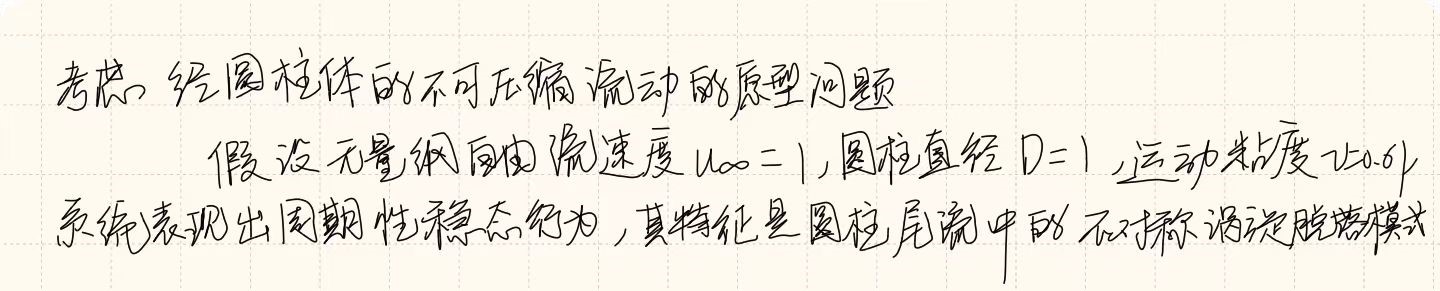 考虑 经圆柱体的不可压缩流动的原型问题
假设无量纲自由流速度 u∞=1,圆柱直径 D=1,运动粘度 ν=0.01,
系统表现出周期性稳态行为,其特征是圆柱尾流中的不对称涡旋脱落模式